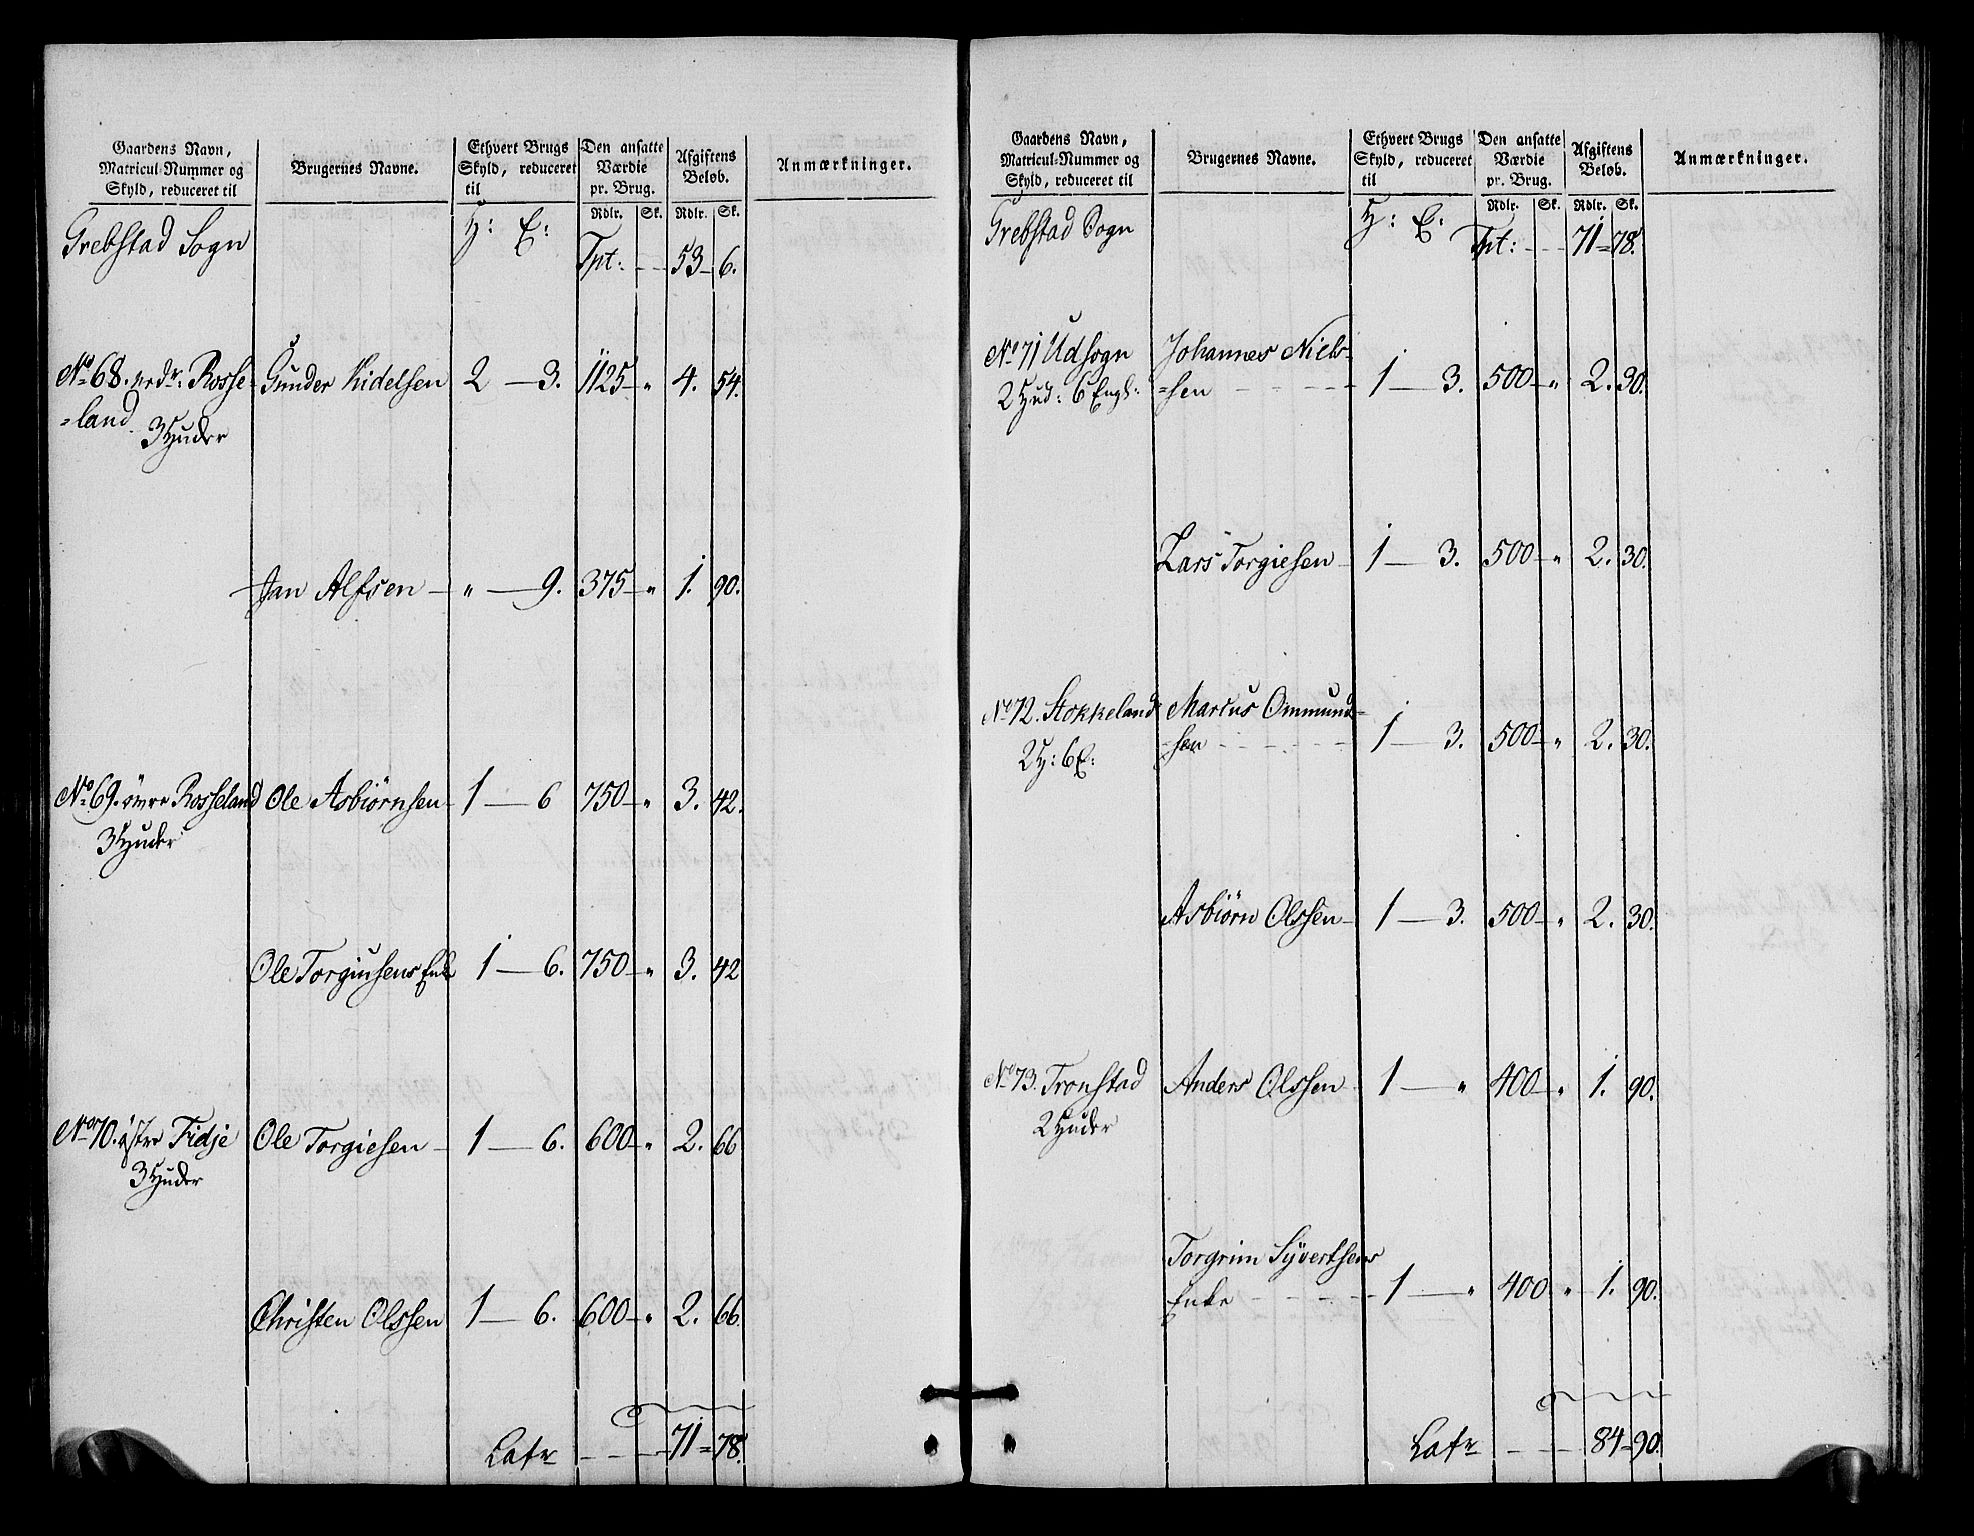 Gaardens Navn, Matricul-Nummer og Skyld, reduceret til | Brugernes Navne. | Ethvert Brugs Skyld, reduceret til | Den ansatte Værdie pr. Brug. | Afgiftens Beløb. | Anmærkninger.
Rdlr. Sk. Rdlr. Sk.
Grebstad Sogn H: E: Tpt: - - 53 - 6.
No 68. nedr: Rosse- Gunder Kidelsen 2 — 3. 1125 - " 4. 54.
=land
3 Huder
Jan Alfsen — " — 9. 375 - " 1. 90.
No 69. øvre Rosseland Ole Asbiørnsen 1 — 6 750 - " 3. 42.
3 Huder
Ole Torgiusens Enke 1 — 6. 750 - " 3. 42
No 70. østre Fidje Ole Torgiesen — 1 — 6. 600 - " 2. 66
3 Huder
Christen Olssen 1 — 6. 600 - " 2. 66.
Latr - - - 71 = 78.
Gaardens Navn, Matricul-Nummer og Skyld, reduceret til | Brugernes Navne. | Ethvert Brugs Skyld, reduceret til | Den ansatte Værdie pr. Brug. | Afgiftens Beløb. | Anmærkninger.
Rdlr. Sk. Rdlr. Sk.
Grebstad Sogn H: E: Tpt: - - - 71 = 78.
No 71 Udsogn Johannes Niels-
2 Hud: 6 Engl: =sen - - - - 1 — 3. 500 - " 2. 30.
Lars Torgiesen - 1 — 3. 500 - " 2. 30.
No 72. Stokkeland Marcus Ommund-
2 H: 6 E: =sen - - - - - 1 — 3. 500 - " 2. 30.
Asbiørn Olssen - 1 — 3. 500 - " 2. 30.
No 73. Tronstad Anders Olssen 1 — " 400 - " 1. 90.
2 Huder
Torgrim Syvertsens
Enke - - - - - 1 — " 400 " 1. 90.
Latr - - - 84 - 90.